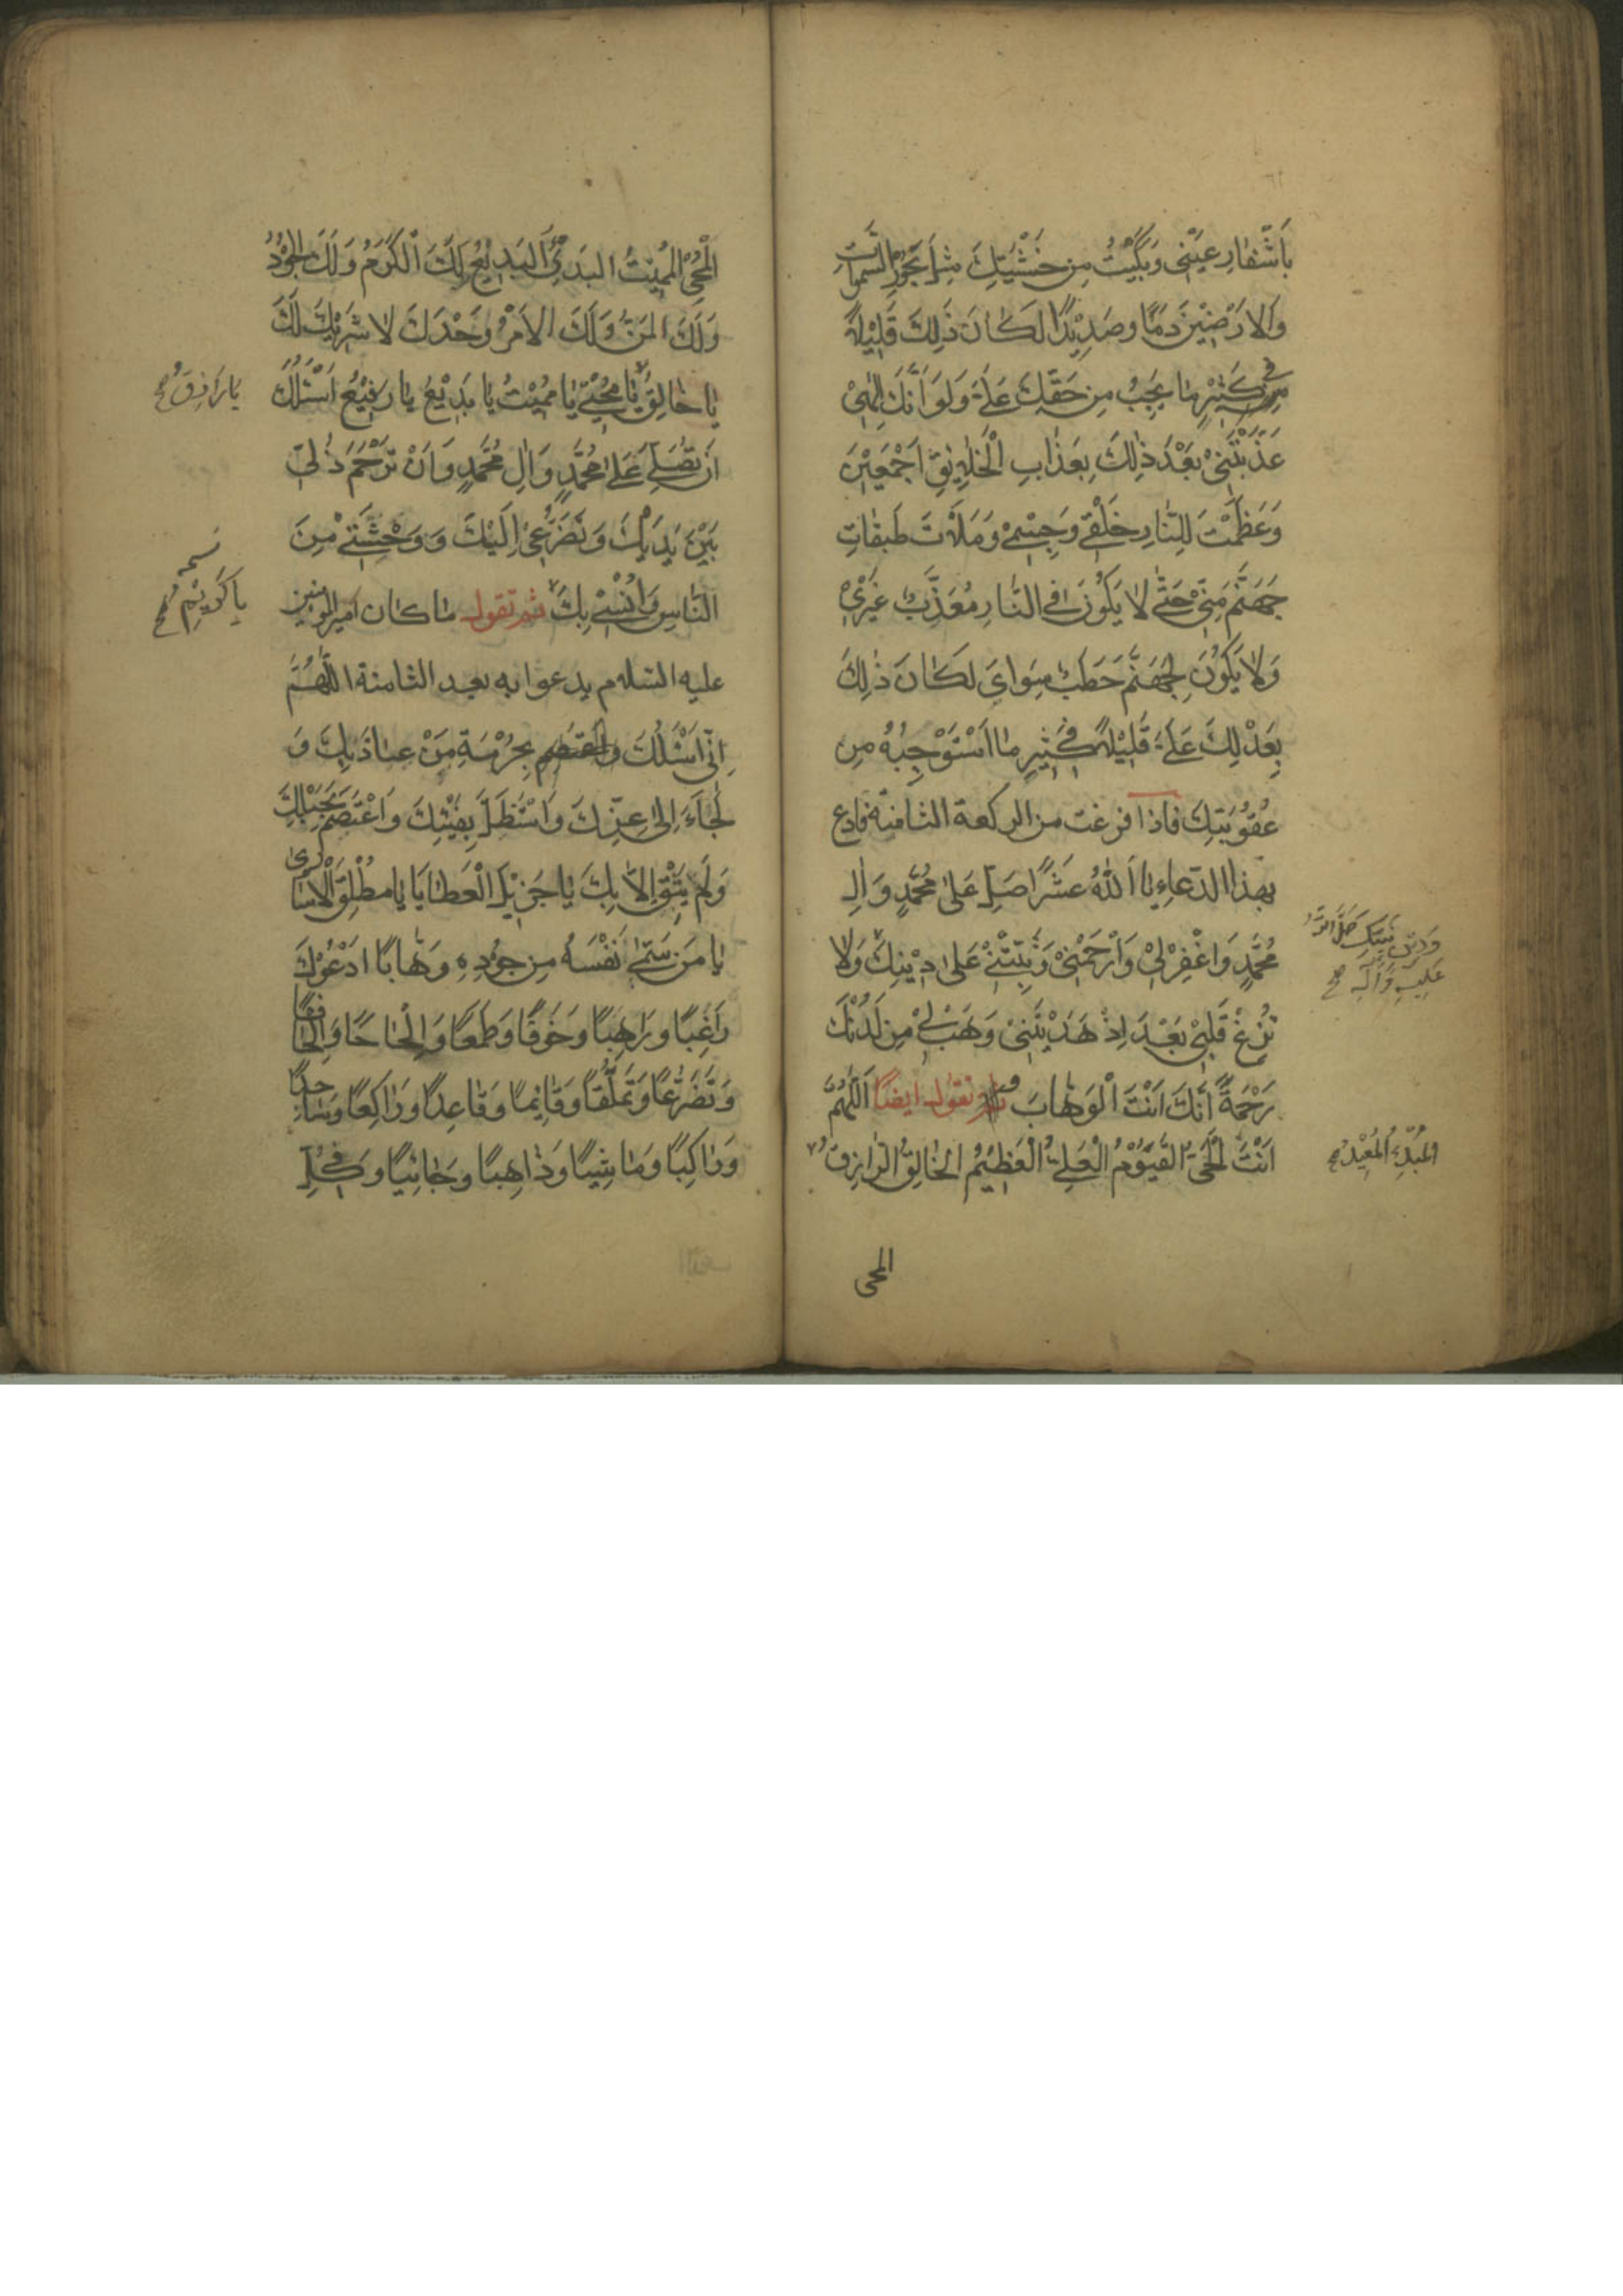 بِاَشْفٰارِ عَيْنٰى وَبَكَيْتُ مِن خَشْيَتِكَ مِثْلَ بُحُورِ السَّمٰوٰاتِ
وَالاَرَضٖينَ دَمًا وصَديٖدًا لَكٰانَ ذٰلِكَ قَليٖلاً
فى كَثيٖرِ مٰا يَجِبُ مِن حَقِّكَ عَلَىَّ وَلَوْ اَنَّكَ اِلٰهٖى
عَذَّبْتَنٖى بَعْدَ ذٰلِكَ بِعَذٰابِ الْخَلاٰيِقِ اَجْمَعيٖنَ
وَعَظَّمْتَ لِلنّٰارِ خَلْقٖى وَجِسْمٖى وَمَلَأْتَ طَبَقٰاتِ
جَهَنَّمَ مِنّٖى حَتّٰى لاٰ يَكُونَ فِى النّٰارِ مُعَذَّبٌ غَيْرٖى
وَلاٰ يَكُونَ لِجَهَنَّمَ حَطَبٌ سِوٰاىَ لَكٰانَ ذٰلِكَ
بِعَدْلِكَ عَلَىَّ قَليٖلاً فى كَثيٖرِ مٰا اَسْتَوْجِبُهُ مِن
عُقُوُبَتِكَ فاذا فرغت من الركعة الثامنة فادع
بهذا الدّعاءِ يٰا اَللّٰهُ عَشْرًا صَلِّ عَلىٰ مُحَمَّدٍ وَاٰلِ
مُحَمَّدٍ وَاغْفِرْلٖى وَارْحَمْنٖى وَثَبِّتْنٖى عَلىٰ ديٖنِكَ وَلاٰ
وَديٖنِ نَبِيِّكَ صَلَّى اللّٰهُ
عَلَيْهِ وَآلِهِ صح
تُزِغْ قَلْبٖى بَعْدَ اِذْ هَدَيْتَنٖى وَهَبْ لٖى مِن لَدُنْكَ
رَحْمَةً اِنَّكَ اَنْتَ الْوَهّٰابُ ثم تقول ايضًا اَللّٰهُمَّ
اَنْتَ الْحَىُّ القَيُّوْمُ الْعَلِىُّ الْعَظيٖمُ الخٰالِقُ الرّٰازِقُ
المُبْدِئُ المُعيٖدُ صح
المحى
الْمُحْيِى المُميٖتُ البَدٖئُ البَديٖعُ لَكَ الْكَرَمُ وَلَكَ الجُوْدُ
وَلَكَ المَنُّ وَلَكَ الاَمْرُ وَحْدَكَ لاٰ شَريٖكَ لَكَ
يٰا خٰالِقُ يٰا مُحْيٖى يٰا مُميٖتُ يٰا بَديٖعُ يٰا رَفيٖعُ اَسْئَلُكَ
يٰا رٰازِقُ صح
اَن تُصَلِّىَ عَلىٰ مُحَمَّدٍ وَاٰلِ مُحَمَّدٍ وَاَنْ تَرْحَمَ ذُلّٖى
بَيْنَ يَدَيْكَ وَتَضَرُّعٖى اِلَيْكَ وَ وَحْشَتٖى مِنَ
النّٰاسِ وَاُنْسٖى بِكَ ثم تقول ما كان امير المؤمنين
يٰا كَريٖمُ صح
عليه السّلام يدعوا به بعد الثامنة اللّٰهُمَّ
اِنّٖى اَسْئَلُكَ بِحُرْمَةِ مَنْ عٰاذَ بِكَ وَ
لَجَاَءَ اِلىٰ عِزِّكَ وَاسْتَظَلَّ بِفَيْئِكَ وَاعْتَصَمَ بِحَبْلِكَ
وَلَم يَثِقْ اِلاّٰ بِكَ يٰا جَزيٖلَ الْعَطٰايٰا يٰا مُطْلِقَ الْاُسٰارىٰ
يٰا مَن سَمّٰى نَفْسَهُ مِن جُودِهٖ وَهّٰابًا ادَعُوكَ
رٰاغِبًا ورٰاهِبًا وَخَوْفًا وَطَمَعًا وَاِلْحٰاحًا وَاِلْحٰافًا
وَتَضَرُّعًا وَتَمَلُّقًا وَقٰائِمًا وَقٰاعِدًا ورٰاكِعًا وَسٰاجِدًا
وَرٰاكِبًا وَمٰاشِيًا وَذٰاهِبًا وَجٰائِيًا وَفى كُلِّ